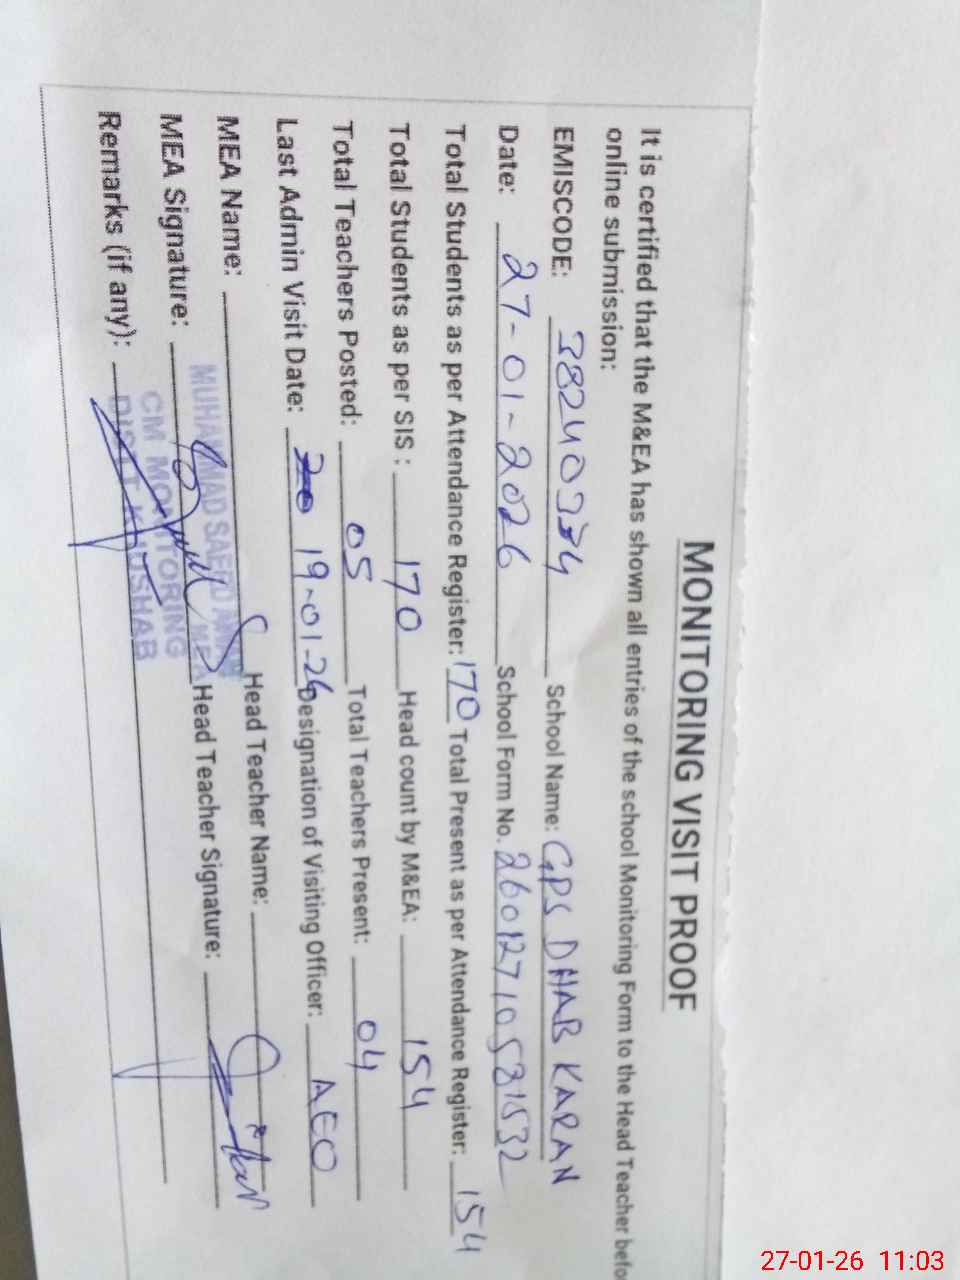 MONITORING VISIT PROOF
It is certified that the M&EA has shown all entries of the school Monitoring Form to the Head Teacher befo
online submission:
EMISCODE: 38240334 School Name: GPS DHAB KARAN
Date: 27-01-2026 School Form No. 26012710531532
Total Students as per Attendance Register: 170 Total Present as per Attendance Register: 154
Total Students as per SIS : 170 Head count by M&EA: 154
Total Teachers Posted: 05 Total Teachers Present: 04
Last Admin Visit Date: 19-01-26 Designation of Visiting Officer: AEO
MEA Name: Head Teacher Name:
MUHAMMAD SAEED
MEA Signature: Head Teacher Signature:
CM MONITORING
Remarks (if any):
DISTT KHUSHAB
27-01-26 11:03